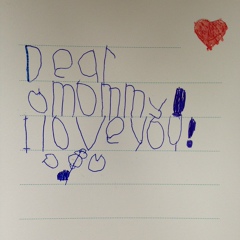 Dear
mommy!
I love you!